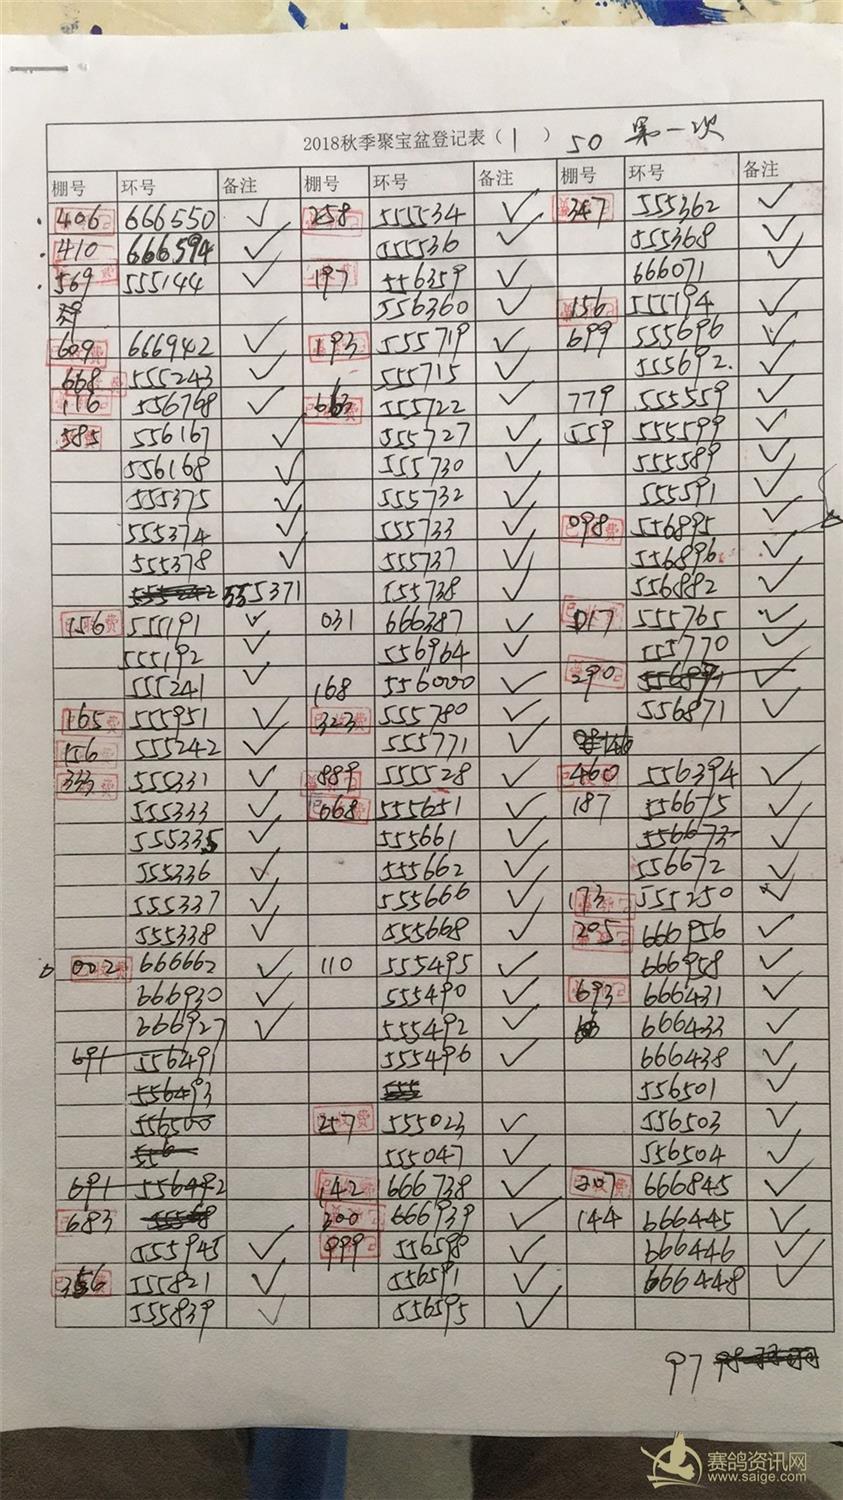 2018秋季聚宝盆登记表（1） 50 第一次
棚号 环号 备注 棚号 环号 备注 棚号 环号 备注
406 666550 ✓ 258 555534 ✓ 347 555362 ✓
410 666594 ✓ 555536 ✓ 555368 ✓
569 555144 ✓ 197 556359 ✓ 666071 ✓
556360 ✓ 156 555194 ✓
609 666942 ✓ 193 555719 ✓ 699 555696 ✓
668 555243 ✓ 555715 ✓ 555692 ✓
116 556768 ✓ 555722 ✓ 779 555559 ✓
585 556167 ✓ 555727 ✓ 559 555599 ✓
556168 ✓ 555730 ✓ 555589 ✓
555375 ✓ 555732 ✓ 555591 ✓
555374 ✓ 555733 ✓ 098 556895 ✓
555378 ✓ 555737 ✓ 556896 ✓
555242 555371 555738 ✓ 556882 ✓
156 555191 ✓ 031 666387 ✓ 017 555765 ✓
555192 ✓ 556964 ✓ 555770 ✓
555241 ✓ 168 556000 ✓ 290 ✓
165 555951 ✓ 323 555780 ✓ 556871 ✓
156 555242 ✓ 555771 ✓
333 555331 ✓ 889 555528 ✓ 460 556394 ✓
555333 ✓ 068 555651 ✓ 187 556675 ✓
555335 ✓ 555661 ✓ 556673 ✓
555336 ✓ 555662 ✓ 556672 ✓
555337 ✓ 555666 ✓ 173 555250 ✓
555338 ✓ 555668 ✓ 205 666956 ✓
002 666662 ✓ 110 555495 ✓ 666958 ✓
666930 ✓ 555490 ✓ 693 666431 ✓
666927 ✓ 555492 ✓ 666433 ✓
691 556491 555496 ✓ 666438 ✓
556493 555 556501 ✓
556500 257 555023 ✓ 556503 ✓
556 555047 ✓ 556504 ✓
691 556492 142 666738 ✓ 207 666845 ✓
683 300 666939 ✓ 144 666445 ✓
555945 ✓ 999 556598 ✓ 666446 ✓
356 555821 ✓ 556591 ✓ 666448 ✓
555839 ✓ 556595 ✓
97
赛鸽资讯网
www.saige.com